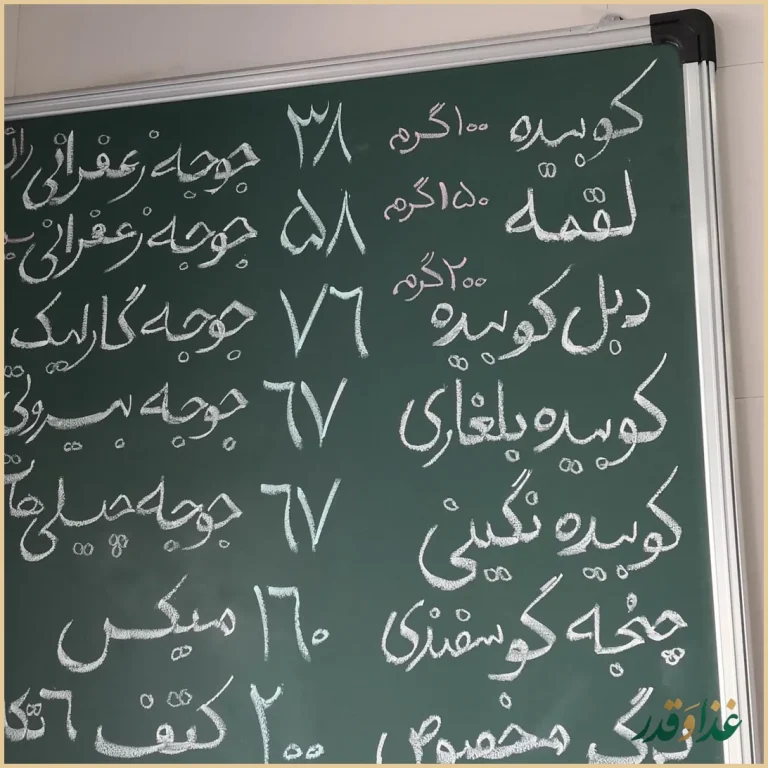 کوبیده ۱۰۰گرم ۳۸ جوجه زعفرانی
لقمه ۱۵۰گرم ۵۸ جوجه زعفرانی
دبل کوبیده ۲۰۰گرم ۷۶ جوجه گارلیک
کوبیده بلغاری ۶۷ جوجه بیروتی
کوبیده نگینی ۶۷ جوجه چیلی
چنجه گوسفندی ۱۶۰ میکس
برگ مخصوص ۲۰۰ کتف ۶
غذا و قدر